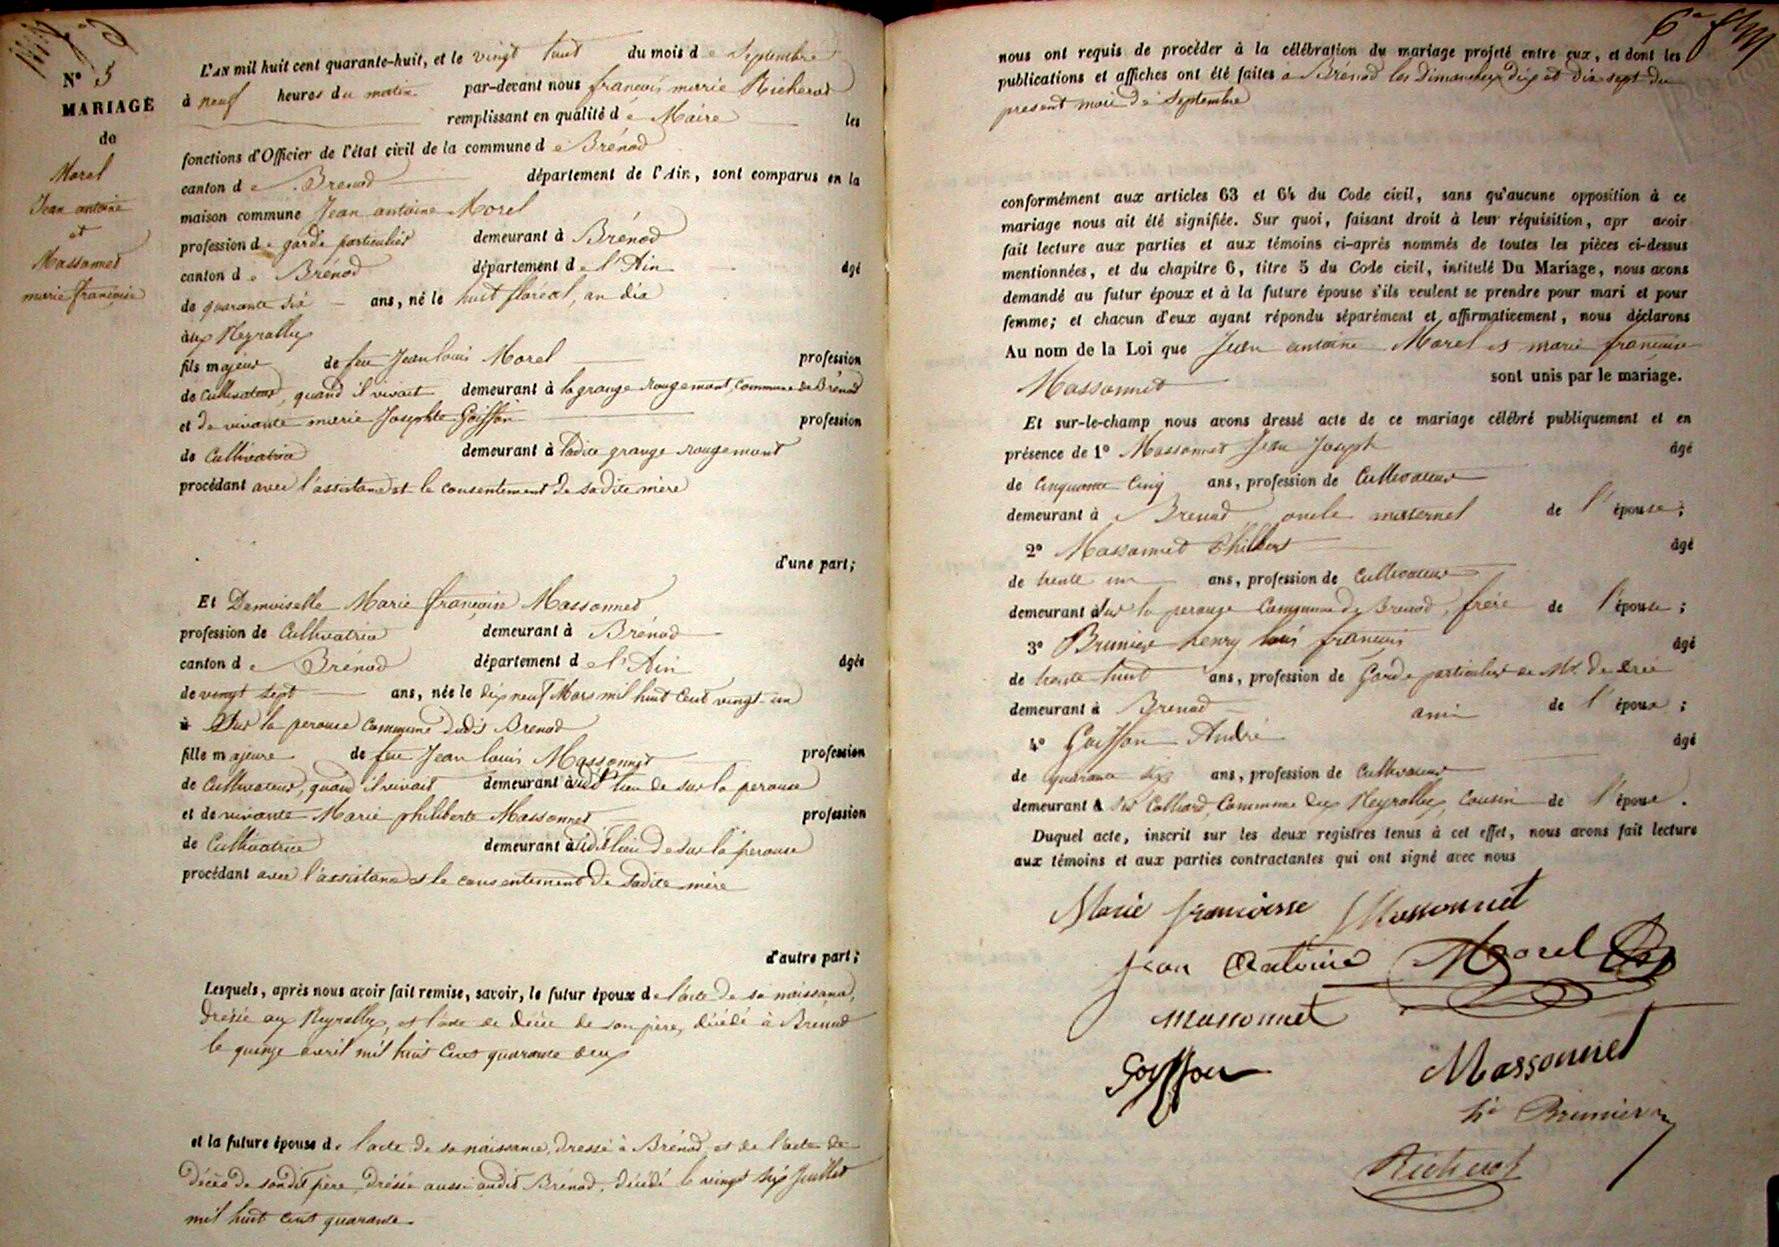 N° 5
MARIAGE
de
Morel
Jean antoine
et
Massonnet
marie françoise
L'AN mil huit cent quarante-huit, et le vingt huit du mois de Septembre
à neuf heures du matin par-devant nous françois marie Richerot
remplissant en qualité de Maire les
fonctions d'Officier de l'état civil de la commune de Brénod
canton de Brenod département de l'Ain, sont comparus en la
maison commune Jean antoine Morel
profession de garde particulier demeurant à Brénod
canton de Brénod département de l'Ain âgé
de quarante six ans, né le huit floréal, an dix
aux Neyrolles
fils majeur de feu Jean louis Morel profession
de Cultivateur, quand il vivait demeurant à la grange rougemont, commune de Brénod
et de vivante marie Josephte Goiffon profession
de Cultivatrice demeurant à ladite grange rougemont
procédant avec l'assistance et le consentement de sadite mère
d'une part;
Et Demoiselle Marie françoise Massonnet
profession de Cultivatrice demeurant à Brénod
canton de Brénod département de l'Ain âgée
de vingt sept ans, née le dix neuf Mars mil huit Cent vingt-un
à Sur la perouse commune dudit Brenod
fille majeure de feu Jean louis Massonnet profession
de Cultivateur, quand il vivait demeurant audit lieu de sur la perouse
et de vivante Marie philiberte Massonnet profession
de Cultivatrice demeurant audit lieu de sur la perouse
procédant avec l'assistance et le consentement de sadite mère
d'autre part;
Lesquels, après nous avoir fait remise, savoir, le futur époux de l'acte de sa naissance,
dressé aux Neyrolles, et l'acte de décès de son père, décédé à Brenod
le quinze avril mil huit Cent quarante deux
et la future épouse de l'acte de sa naissance, dressé à Brénod et de l'acte de
décès de son dit père, dressé aussi audit Brénod, décédé le vingt six Juillet
mil huit Cent quarante
nous ont requis de procéder à la célébration du mariage projeté entre eux, et dont les
publications et affiches ont été faites à Brénod les Dimanches dix et dix sept du
present mois de Septembre
conformément aux articles 63 et 64 du Code civil, sans qu'aucune opposition à ce
mariage nous ait été signifiée. Sur quoi, faisant droit à leur réquisition, apr avoir
fait lecture aux parties et aux témoins ci-après nommés de toutes les pièces ci-dessus
mentionnées, et du chapitre 6, titre 5 du Code civil, intitulé Du Mariage, nous avons
demandé au futur époux et à la future épouse s'ils veulent se prendre pour mari et pour
femme; et chacun d'eux ayant répondu séparément et affirmativement, nous déclarons
Au nom de la Loi que Jean antoine Morel et marie françoise
Massonnet sont unis par le mariage.
Et sur-le-champ nous avons dressé acte de ce mariage célébré publiquement et en
présence de 1° Massonnet Jean Joseph âgé
de Cinquante Cinq ans, profession de Cultivateur
demeurant à Brenod oncle maternel de l'épouse;
2° Massonnet Philibert âgé
de trente un ans, profession de Cultivateur
demeurant à Sur la perouse Commune de Brenod, frère de l'épouse;
3° Brunier henry louis françois âgé
de trente huit ans, profession de Garde particulier de Mr. de
demeurant à Brenod ami de l'époux;
4° Goiffon André âgé
de quarante six ans, profession de Cultivateur
demeurant à Sur Colliard, Commune des Neyrolles, Cousin de l'époux.
Duquel acte, inscrit sur les deux registres tenus à cet effet, nous avons fait lecture
aux témoins et aux parties contractantes qui ont signé avec nous
Marie francoisse Massonnet
Jean Antoine Morel
Massonnet
Goyffon Massonnet
hi Brunier
Richerot